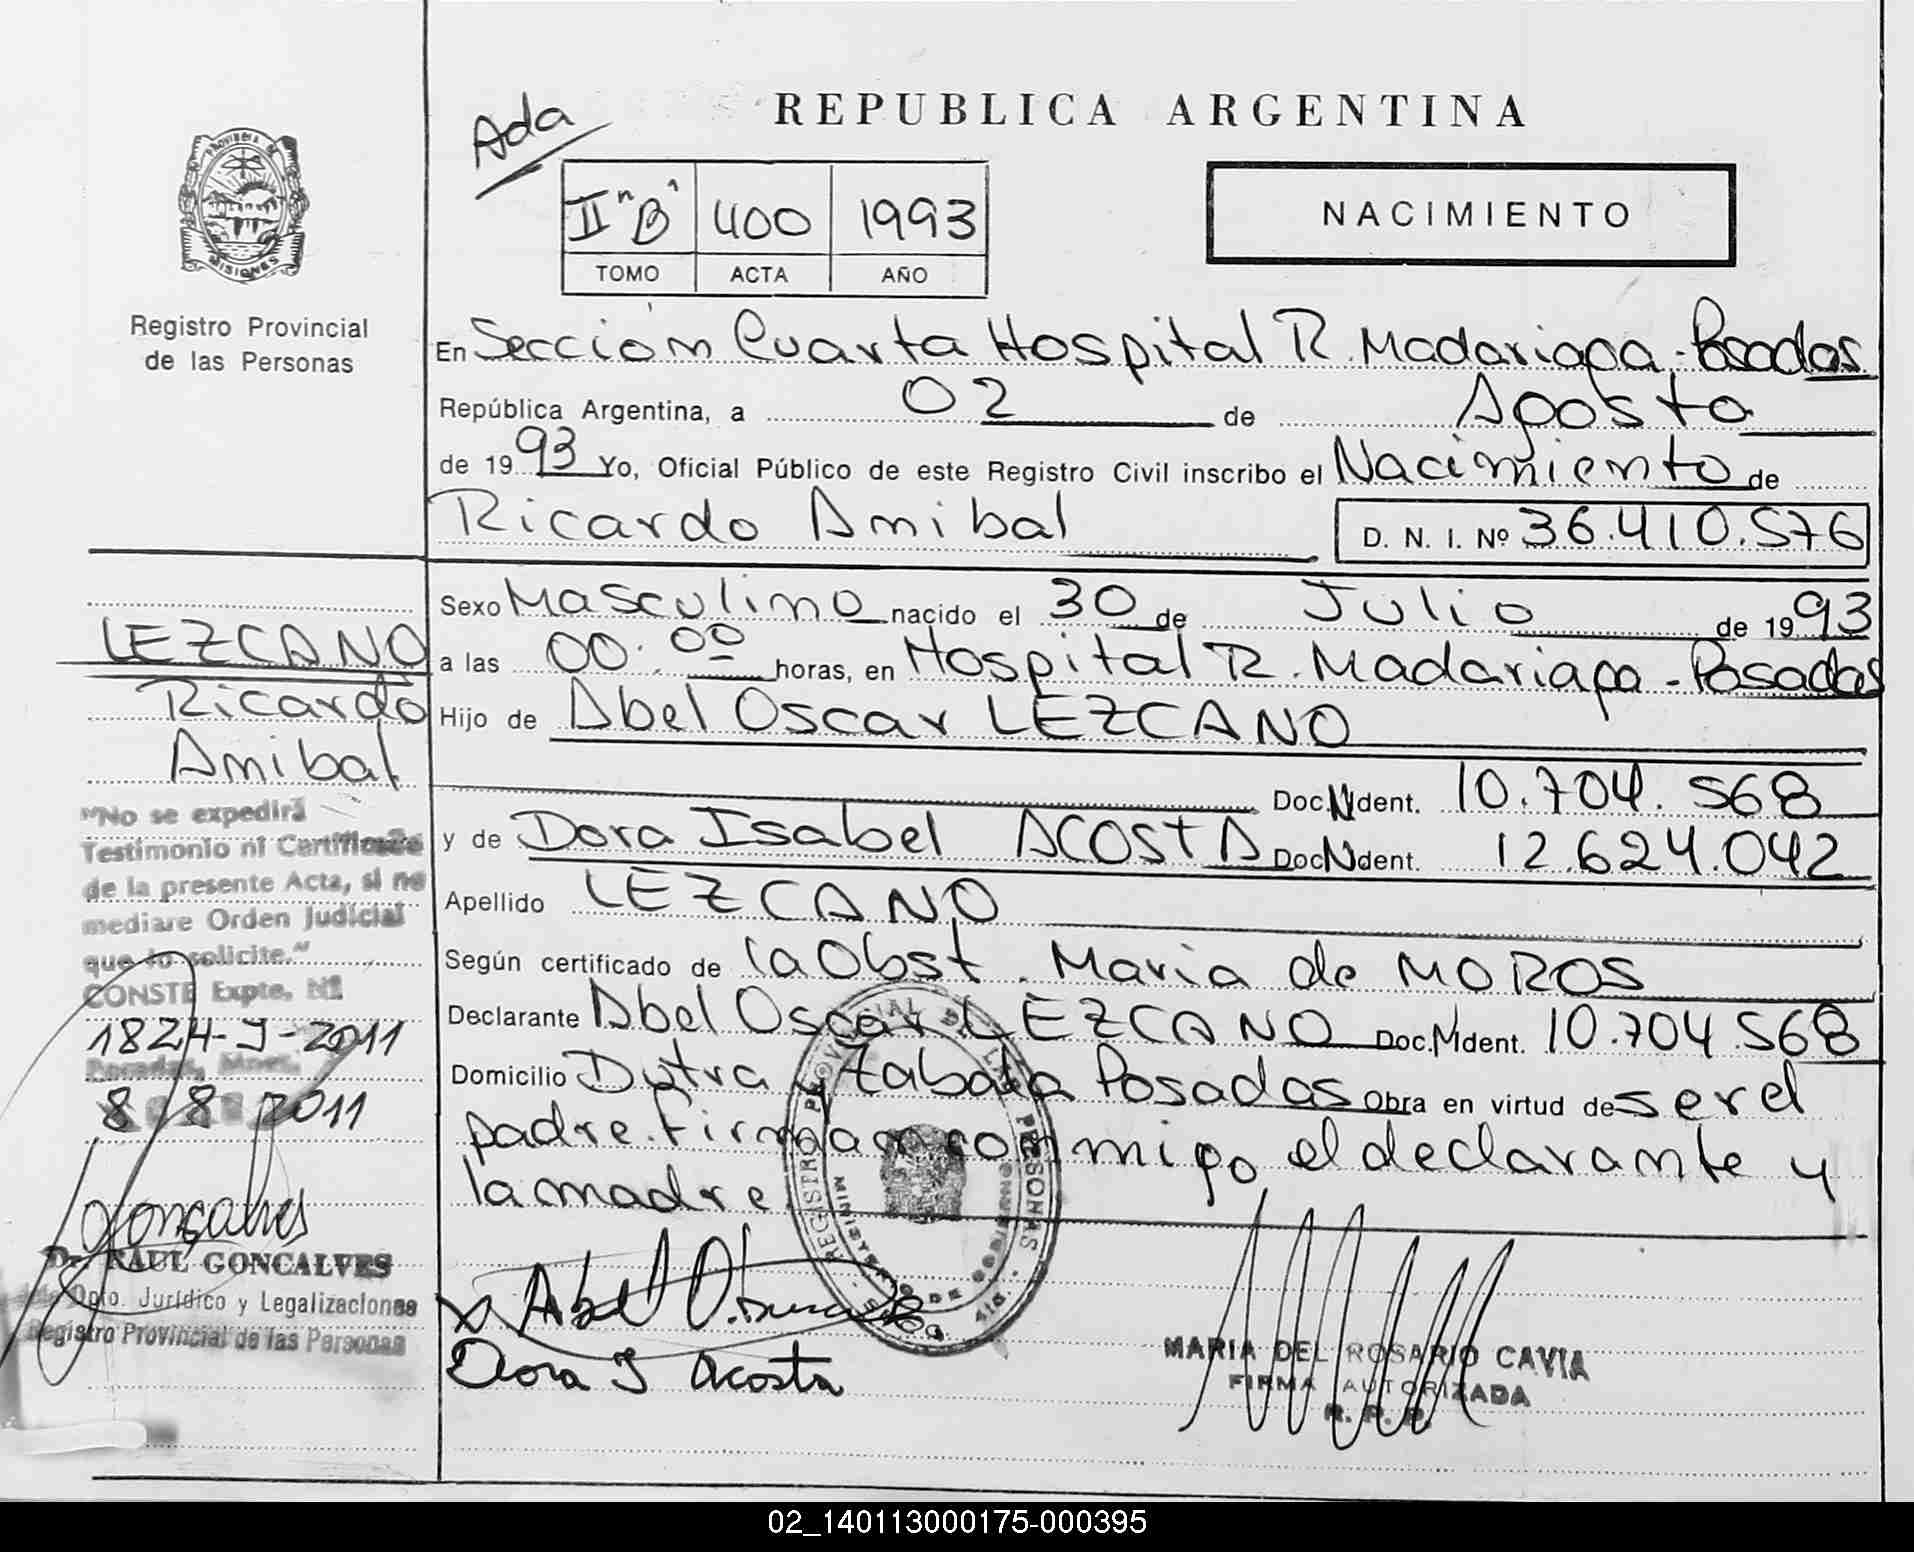 REPUBLICA ARGENTINA
Ada
II "B" 400 1993
TOMO ACTA AÑO
NACIMIENTO
PROVINCIA DE
MISIONES
Registro Provincial
de las Personas
En Sección Cuarta Hospital R. Madariaga - Posadas
República Argentina, a 02 de Agosto
de 1993 Yo, Oficial Público de este Registro Civil inscribo el Nacimiento de
Ricardo Anibal D. N. I. Nº 36.410.576
Sexo Masculino nacido el 30 de Julio de 1993
a las 00:00 horas, en Hospital R. Madariaga - Posadas
Hijo de Abel Oscar LEZCANO
Doc. N Ident. 10.704.568
y de Dora Isabel ACOSTA Doc N Ident. 12.624.042
Apellido LEZCANO
Según certificado de la Obst. Maria de MOROS
Declarante Abel Oscar LEZCANO Doc. N Ident. 10.704.568
Domicilio Dutra y Zabala Posadas Obra en virtud de ser el
padre. Firman conmigo el declarante y
la madre
LEZCANO
Ricardo
Anibal
"No se expedirá
Testimonio ni Certificado
de la presente Acta, si no
mediare Orden Judicial
que lo solicite."
CONSTE Expte. Nº
1824-J-2011
Posadas, Mnes.
8/8 2011
Goncalves
Dr. RAUL GONCALVES
Dpto. Jurídico y Legalizaciones
Registro Provincial de las Personas
REGISTRO PROVINCIAL DE LAS PERSONAS
MINISTERIO DE GOBIERNO
Abel O.
Dora I Acosta
MARIA DEL ROSARIO CAVIA
FIRMA AUTORIZADA
R. P. P.
02_140113000175-000395